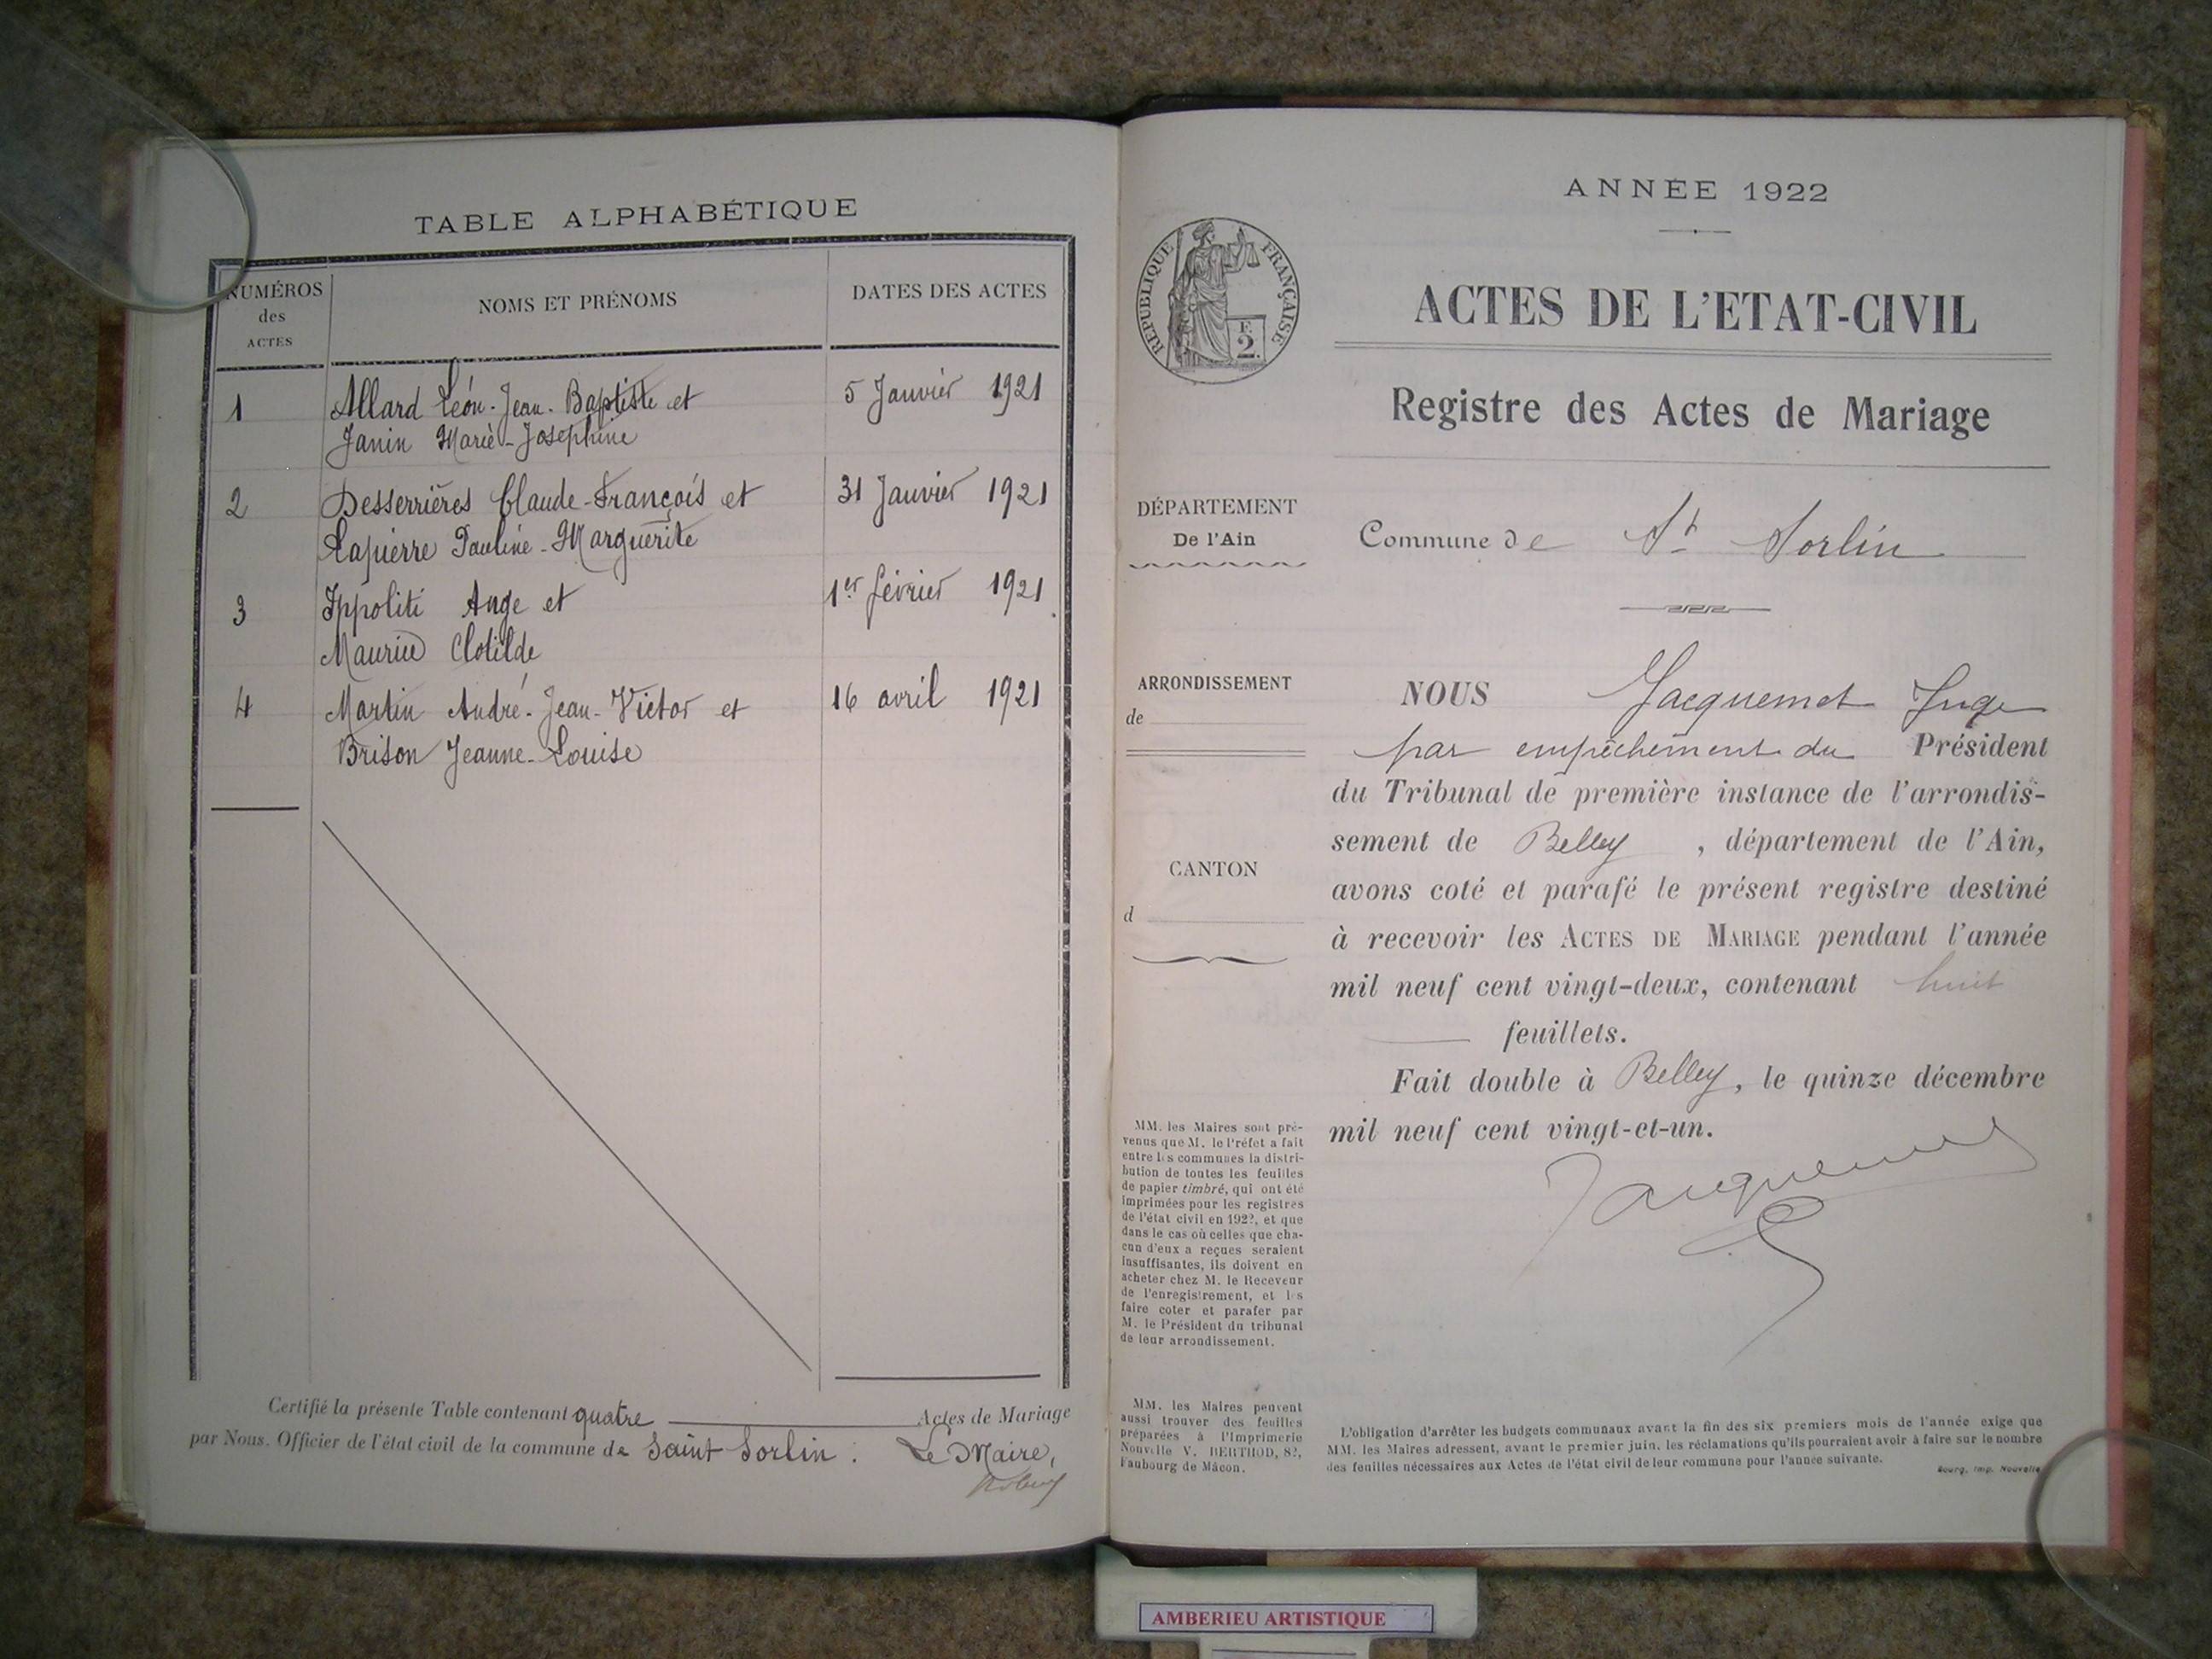 TABLE ALPHABÉTIQUE
NUMÉROS
des
ACTES
NOMS ET PRÉNOMS
DATES DES ACTES
1 Allard Léon-Jean-Baptiste et 5 Janvier 1921
Janin Marie-Josephine
2 Desserrières Claude-François et 31 Janvier 1921
Lapierre Pauline-Marguerite
3 Ippoliti Ange et 1er février 1921
Maurice Clotilde
4 Martin André-Jean-Victor et 16 avril 1921
Brison Jeanne-Louise
Certifié la présente Table contenant quatre Actes de Mariage
par Nous. Officier de l'état civil de la commune de Saint Sorlin. Le Maire,
ANNÉE 1922
RÉPUBLIQUE FRANÇAISE
F.
2.
ACTES DE L'ETAT-CIVIL
Registre des Actes de Mariage
DÉPARTEMENT
De l'Ain
Commune de St Sorlin
ARRONDISSEMENT
de
CANTON
d
NOUS Jacquemet Juge
par empêchement du Président
du Tribunal de première instance de l'arrondis-
sement de Belley, département de l'Ain,
avons coté et parafé le présent registre destiné
à recevoir les ACTES DE MARIAGE pendant l'année
mil neuf cent vingt-deux, contenant huit
feuillets.
Fait double à Belley, le quinze décembre
mil neuf cent vingt-et-un.
Jacquemet
MM. les Maires sont pré-
venus que M. le Préfet a fait
entre les communes la distri-
bution de toutes les feuilles
de papier timbré, qui ont été
imprimées pour les registres
de l'état civil en 1922, et que
dans le cas où celles que cha-
cun d'eux a reçues seraient
insuffisantes, ils doivent en
acheter chez M. le Receveur
de l'enregistrement, et les
faire coter et parafer par
M. le Président du tribunal
de leur arrondissement.
MM. les Maires peuvent
aussi trouver des feuilles
préparées à l'Imprimerie
Nouvelle V. BERTHOD, 82,
Faubourg de Mâcon.
L'obligation d'arrêter les budgets communaux avant la fin des six premiers mois de l'année exige que
MM. les Maires adressent, avant le premier juin, les réclamations qu'ils pourraient avoir à faire sur le nombre
des feuilles nécessaires aux Actes de l'état civil de leur commune pour l'année suivante.
Bourg, Imp. Nouvelle
AMBERIEU ARTISTIQUE